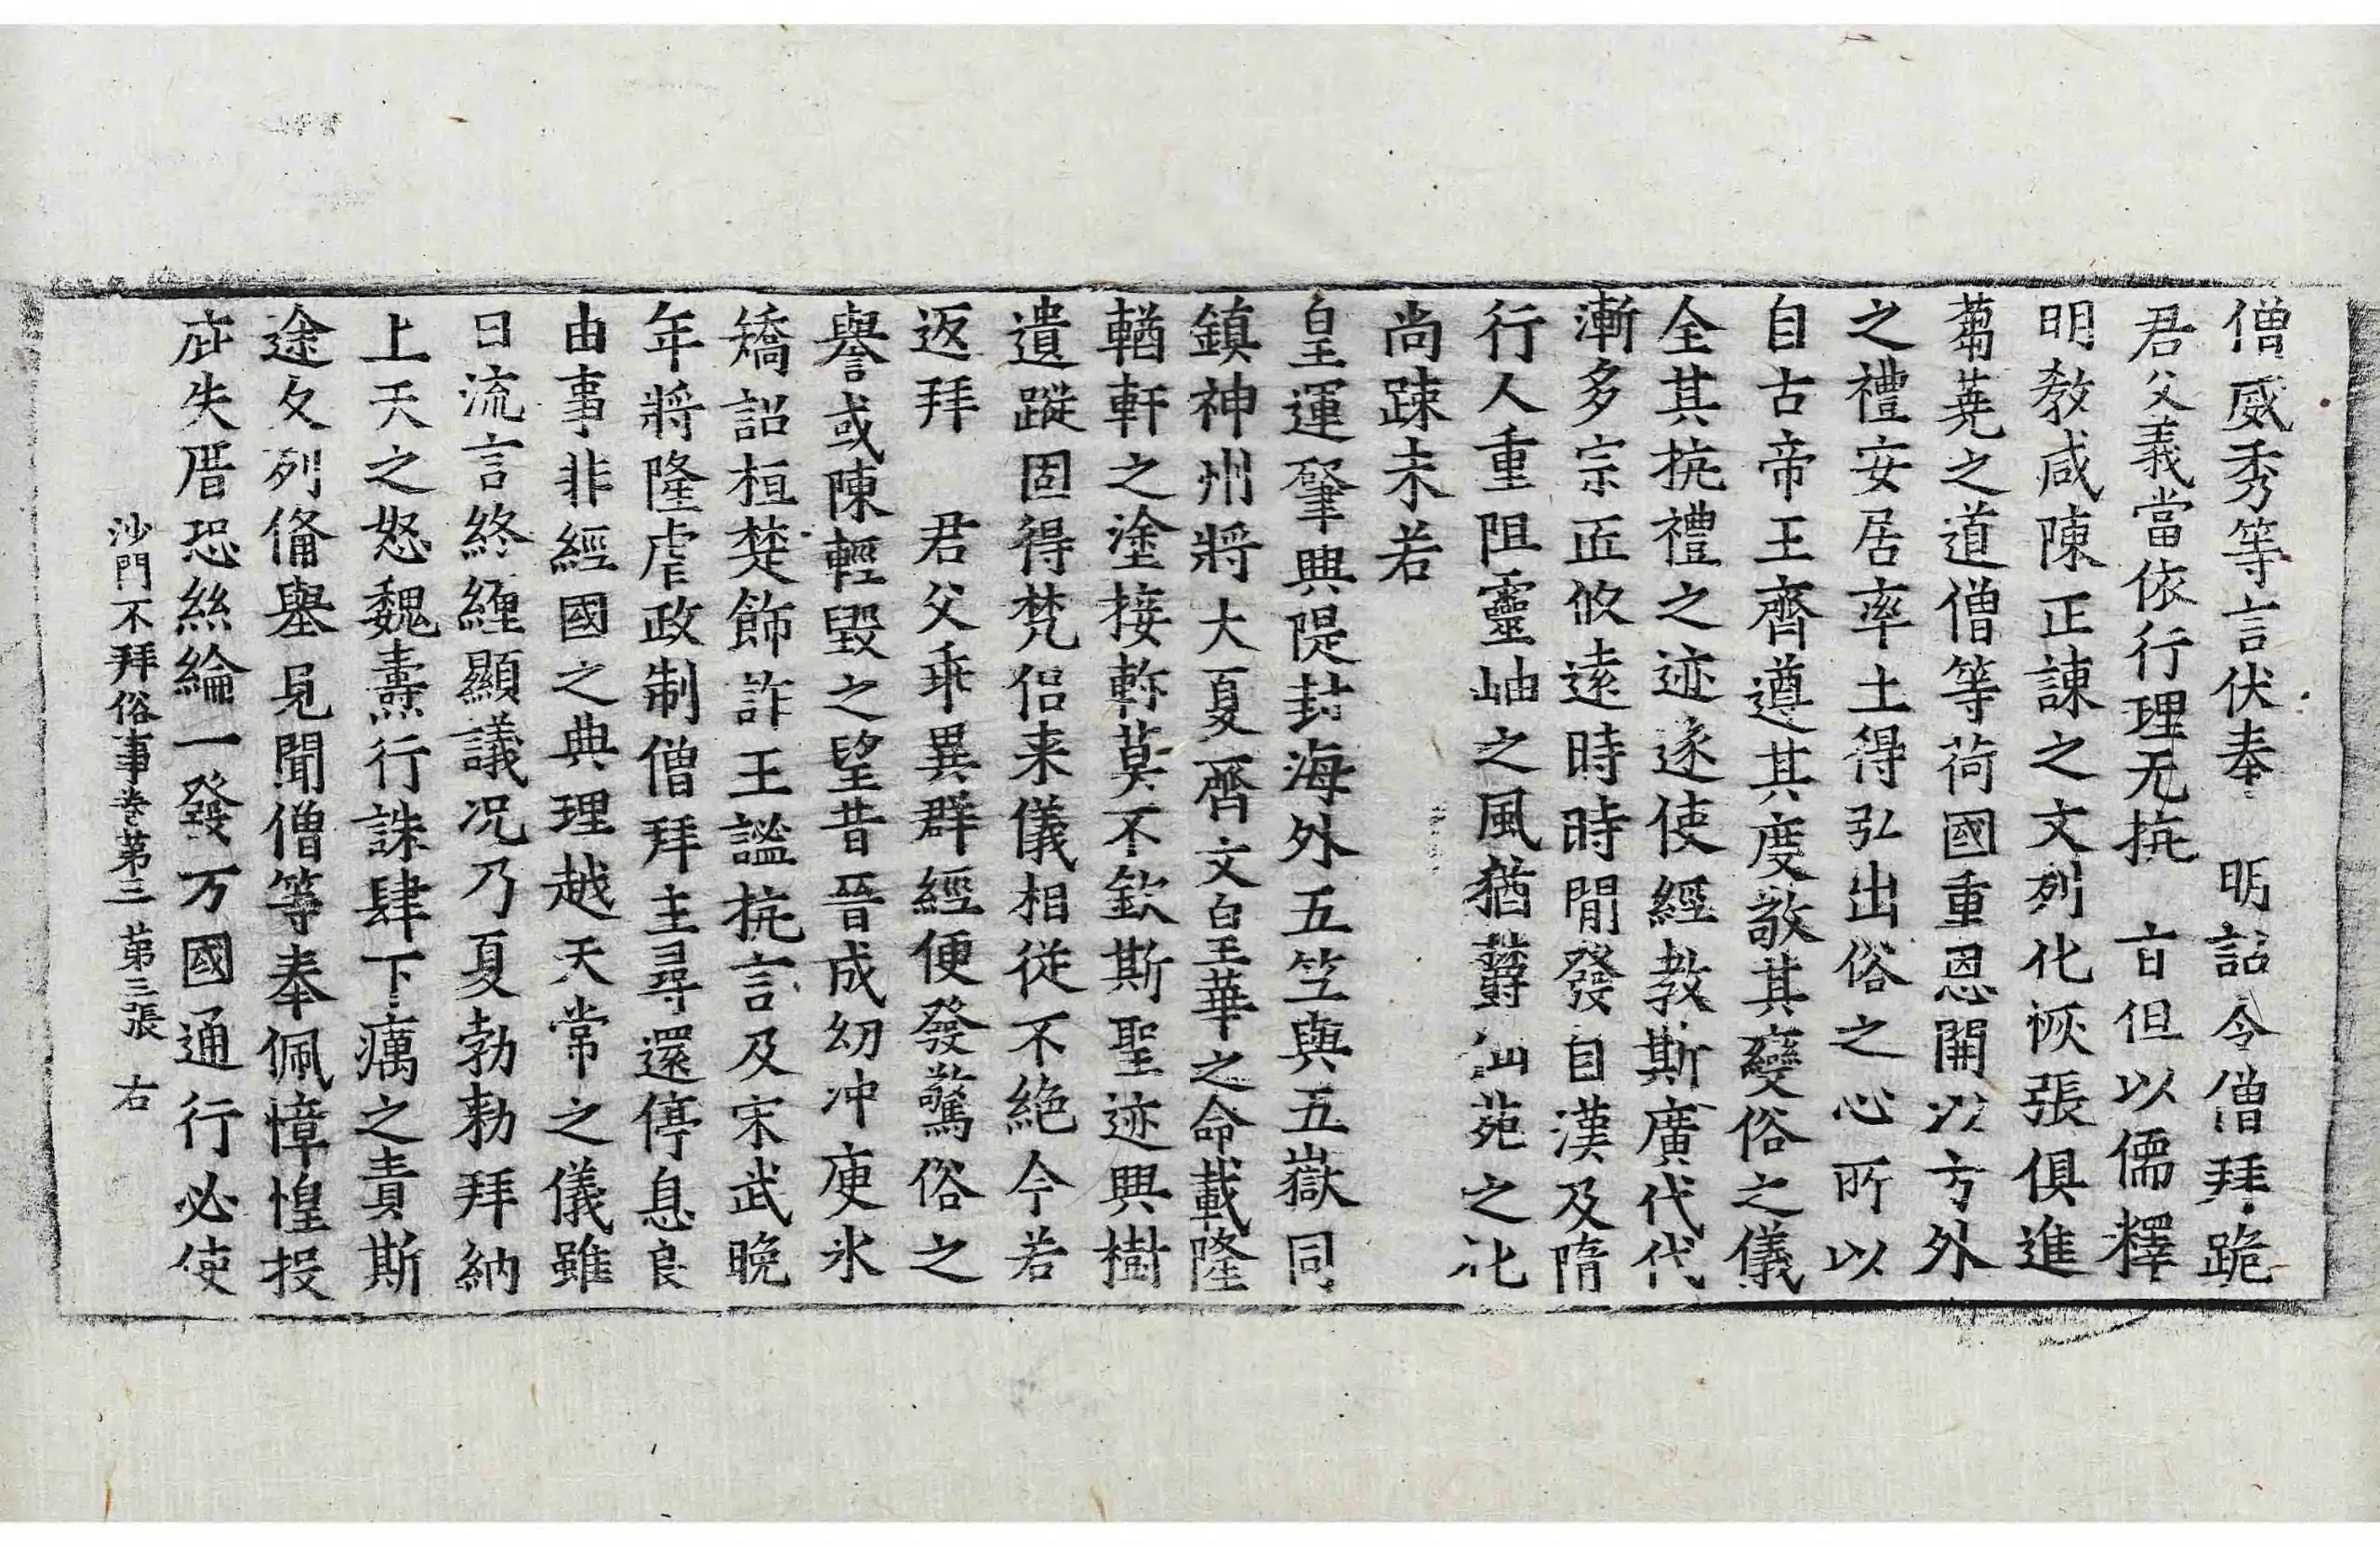 僧威秀等言伏奉　明詔令僧拜跪
君父義當依行理无抗　旨但以儒釋
明教咸陳正諫之文列化恢張俱進
蒭蕘之道僧等荷國重恩開以方外
之禮安居率土得弘出俗之心所以
自古帝王齊遵其度敬其變俗之儀
全其抗禮之迹遂使經教斯廣代代
漸多宗匠攸遠時時間發自漢及隋
行人重阻靈岫之風猶欝仙苑之化
尚踈未若
皇運肇興隄封海外五竺與五嶽同
鎮神州將大夏齊文皇華之命載隆
輶軒之塗接軫莫不欽斯聖迹興樹
遺蹤固得梵侣来儀相從不絶今若
返拜　君父乖異群經便發驚俗之
譽或陳輕毀之望昔晉成幼冲庾氷
矯詔桓楚飾詐王謐抗言及宋武晚
年將隆虐政制僧拜主尋還停息良
由事非經國之典理越天常之儀雖
曰流言終纏顯議况乃夏勃勑拜納
上天之怒魏燾行誅肆下癘之責斯
途久列備舉見聞僧等奉佩慞惶投
庇失厝恐絲綸一發万國通行必使
沙門不拜俗事卷第三　第三張　右